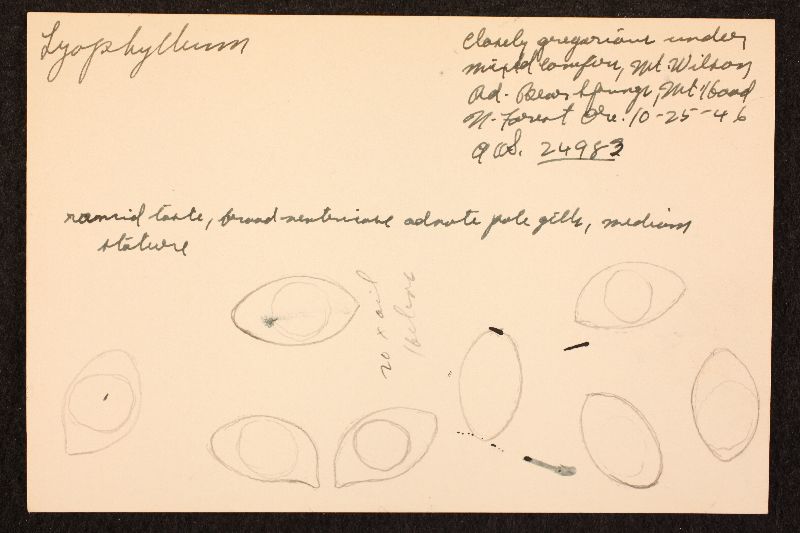 Lyophyllum
Closely gregarious under
mixed conifer, Mt. Wilson
Rd. Bear Springs, Mt Hood
N. Forest Ore. 10-25-46
24983
rancid taste, broad ventricose adnate pale gills, medium
stature
20 x oil